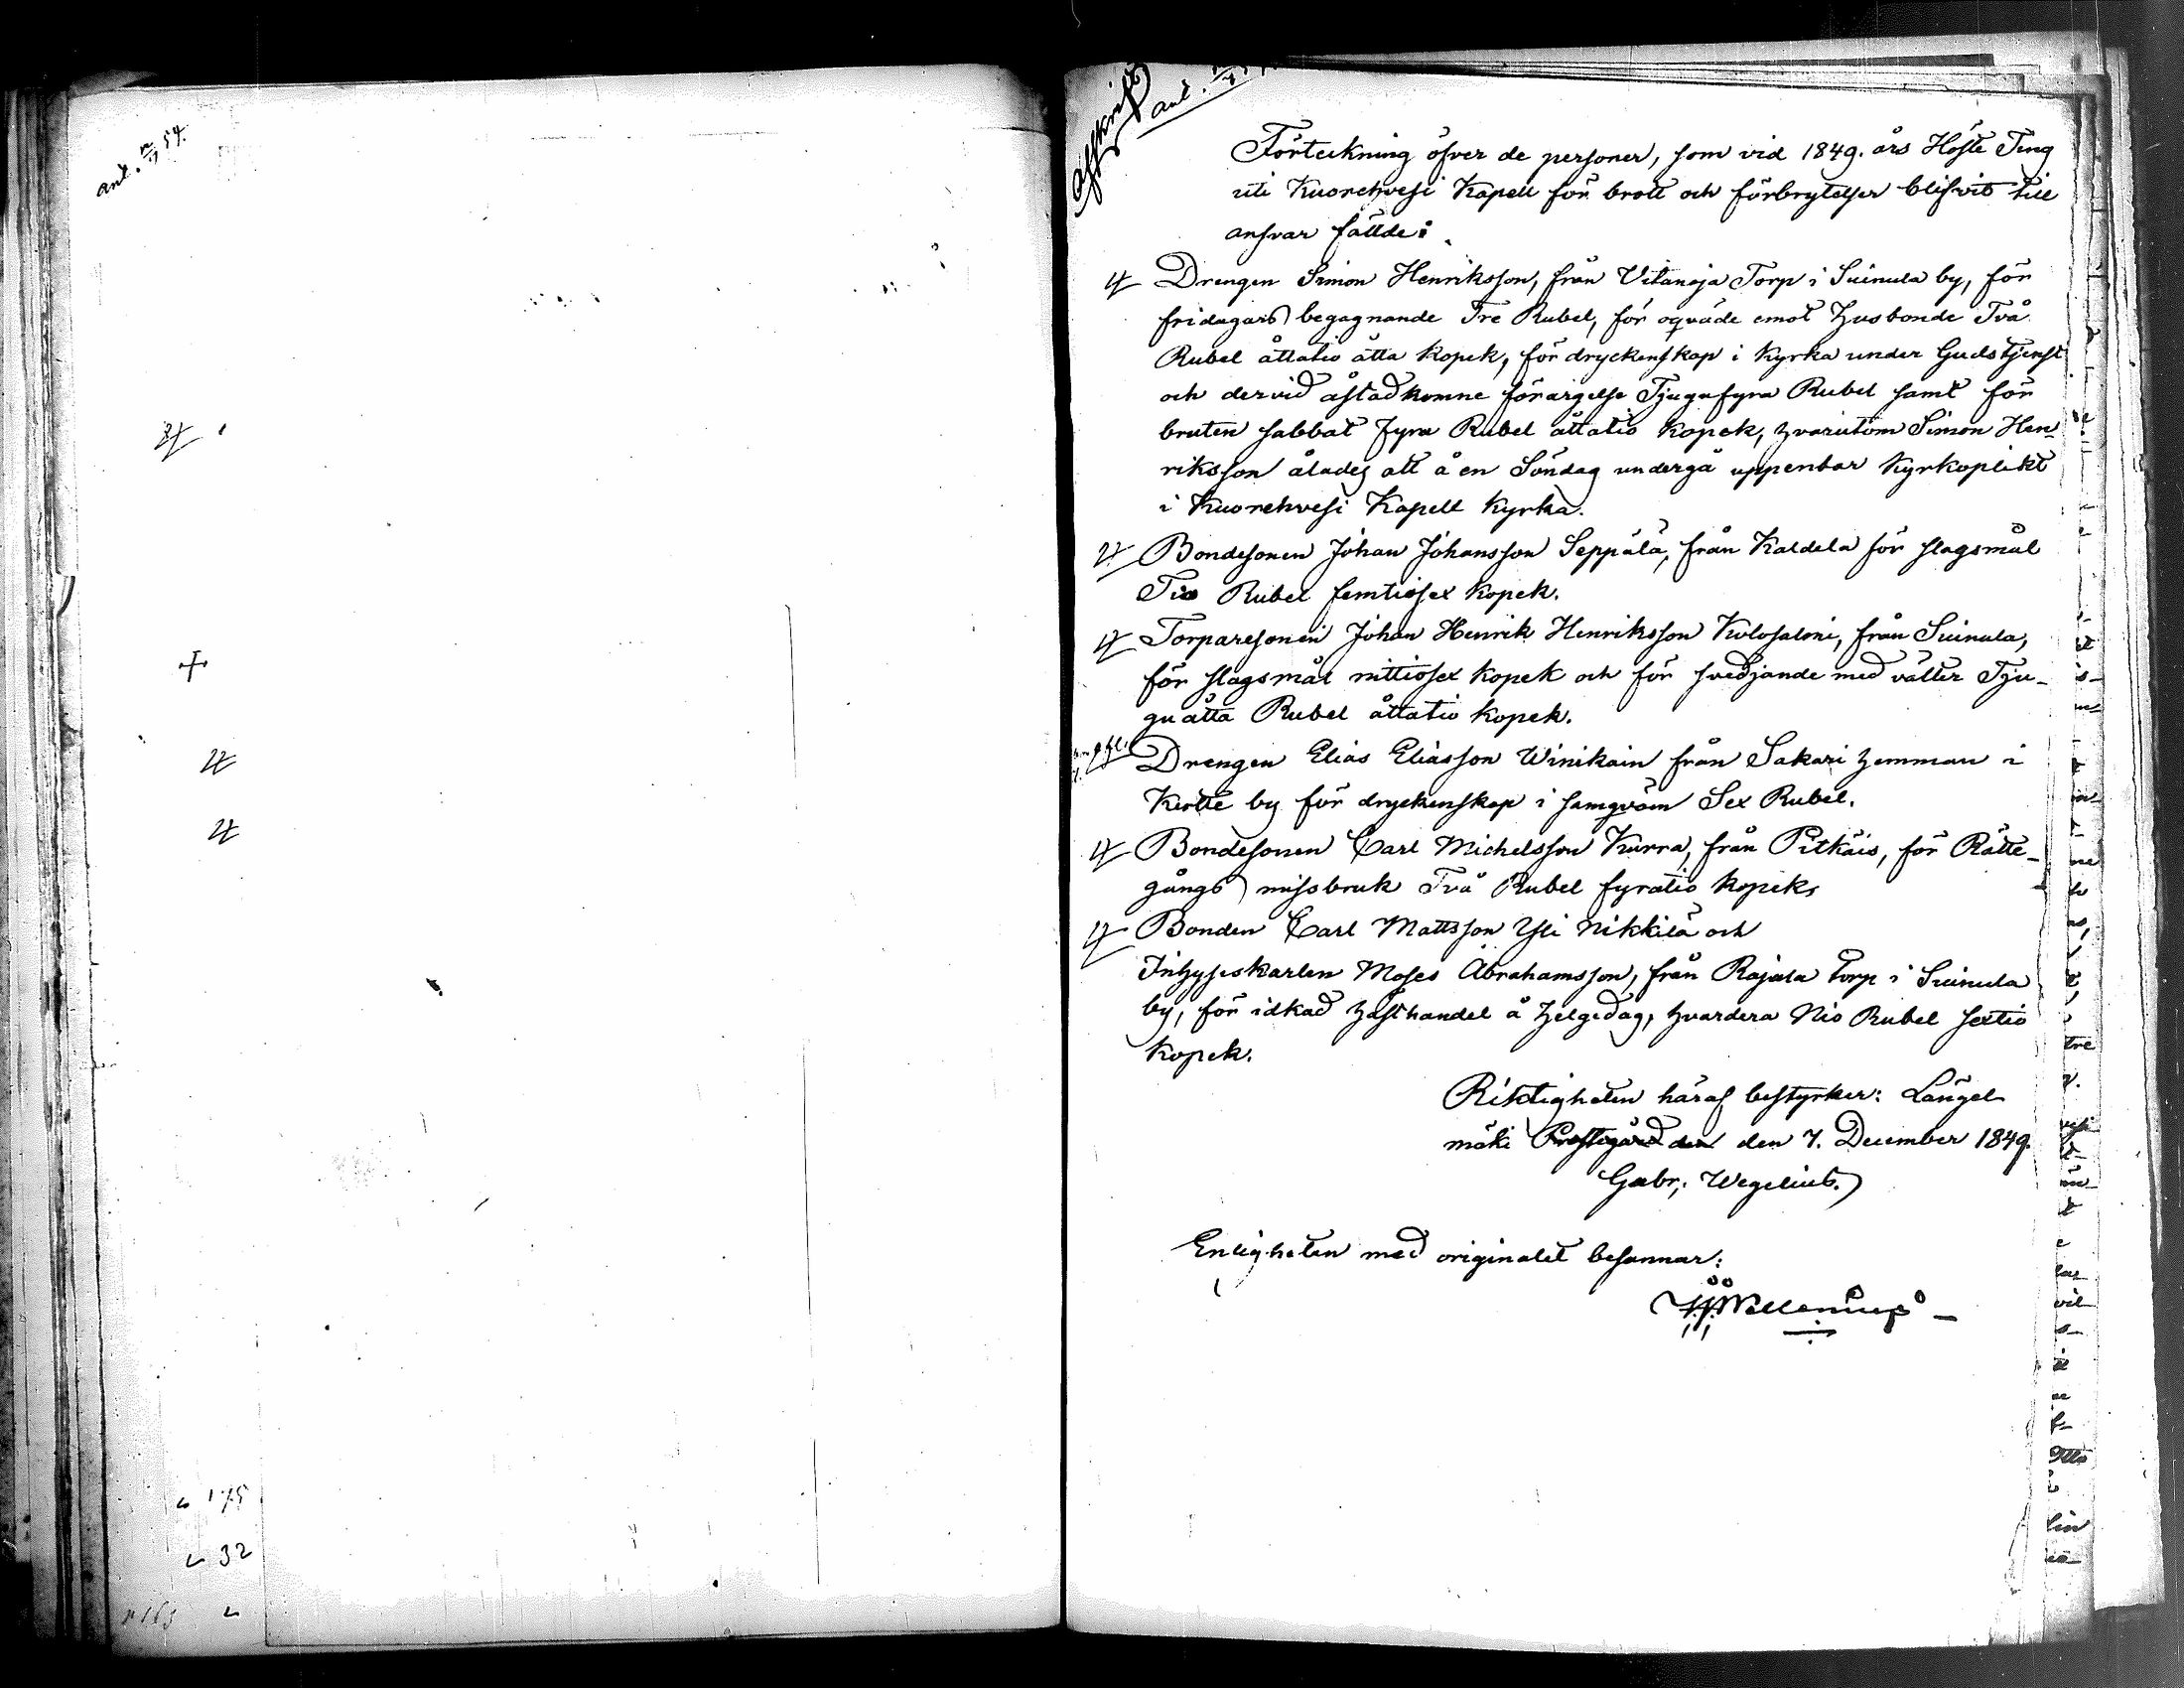 anl. 54.
175
32
Afskrift
anl.
Förteckning öfver de personer, som vid 1849. års Höste Ting
uti Kuorehvesi Kapell för brott och förbrytelser blifvit till
ansvar fällde:
Drengen Simon Henriksson, från Vitanoja Torp i Suinula by, för
fridagars begagnande Tre Rubel, för oqväde emot husbonde Två
Rubel åttatio åtta kopek, för dryckenskap i Kyrka under Gudstjenst
och dervid åstadkomne förargelse Tjugufyra Rubel samt för
bruten sabbat fyra Rubel åttatio kopek, hvarutom Simon Hen-
riksson ålades att å en Söndag undergå uppenbar Kyrkoplikt
i Kuorehvesi Kapell Kyrka.
Bondesonen Johan Johansson Seppälä, från Kaldela för slagsmål
Tio Rubel femtiosex kopek.
Torparesonen Johan Henrik Henriksson Kulosalmi, från Suinula,
för slagsmål nittiosex kopek och för svedjande med välter Tju-
gu åtta Rubel åttatio kopek.
Drengen Elias Eliasson Winikain från Sakari hemman i
Kertte by för dryckenskap i samqväm Sex Rubel.
Bondesonen Carl Michelsson Kurra, från Pitkäis, för Rätte-
gångs missbruk Två Rubel fyratio kopek,
Bonden Carl Mattsson Yli Nikkilä och
Inhyseskarlen Moses Abrahamsson, från Rajala Torp i Suinula
by, för idkad hästhandel å helgedag, hvardera Nio Rubel sextio
kopek.
Riktigheten häraf bestyrker: Längel-
mäki Prestegård den den 7. December 1849.
Gabr; Wegelius.
Enligheten med originalet besannar: